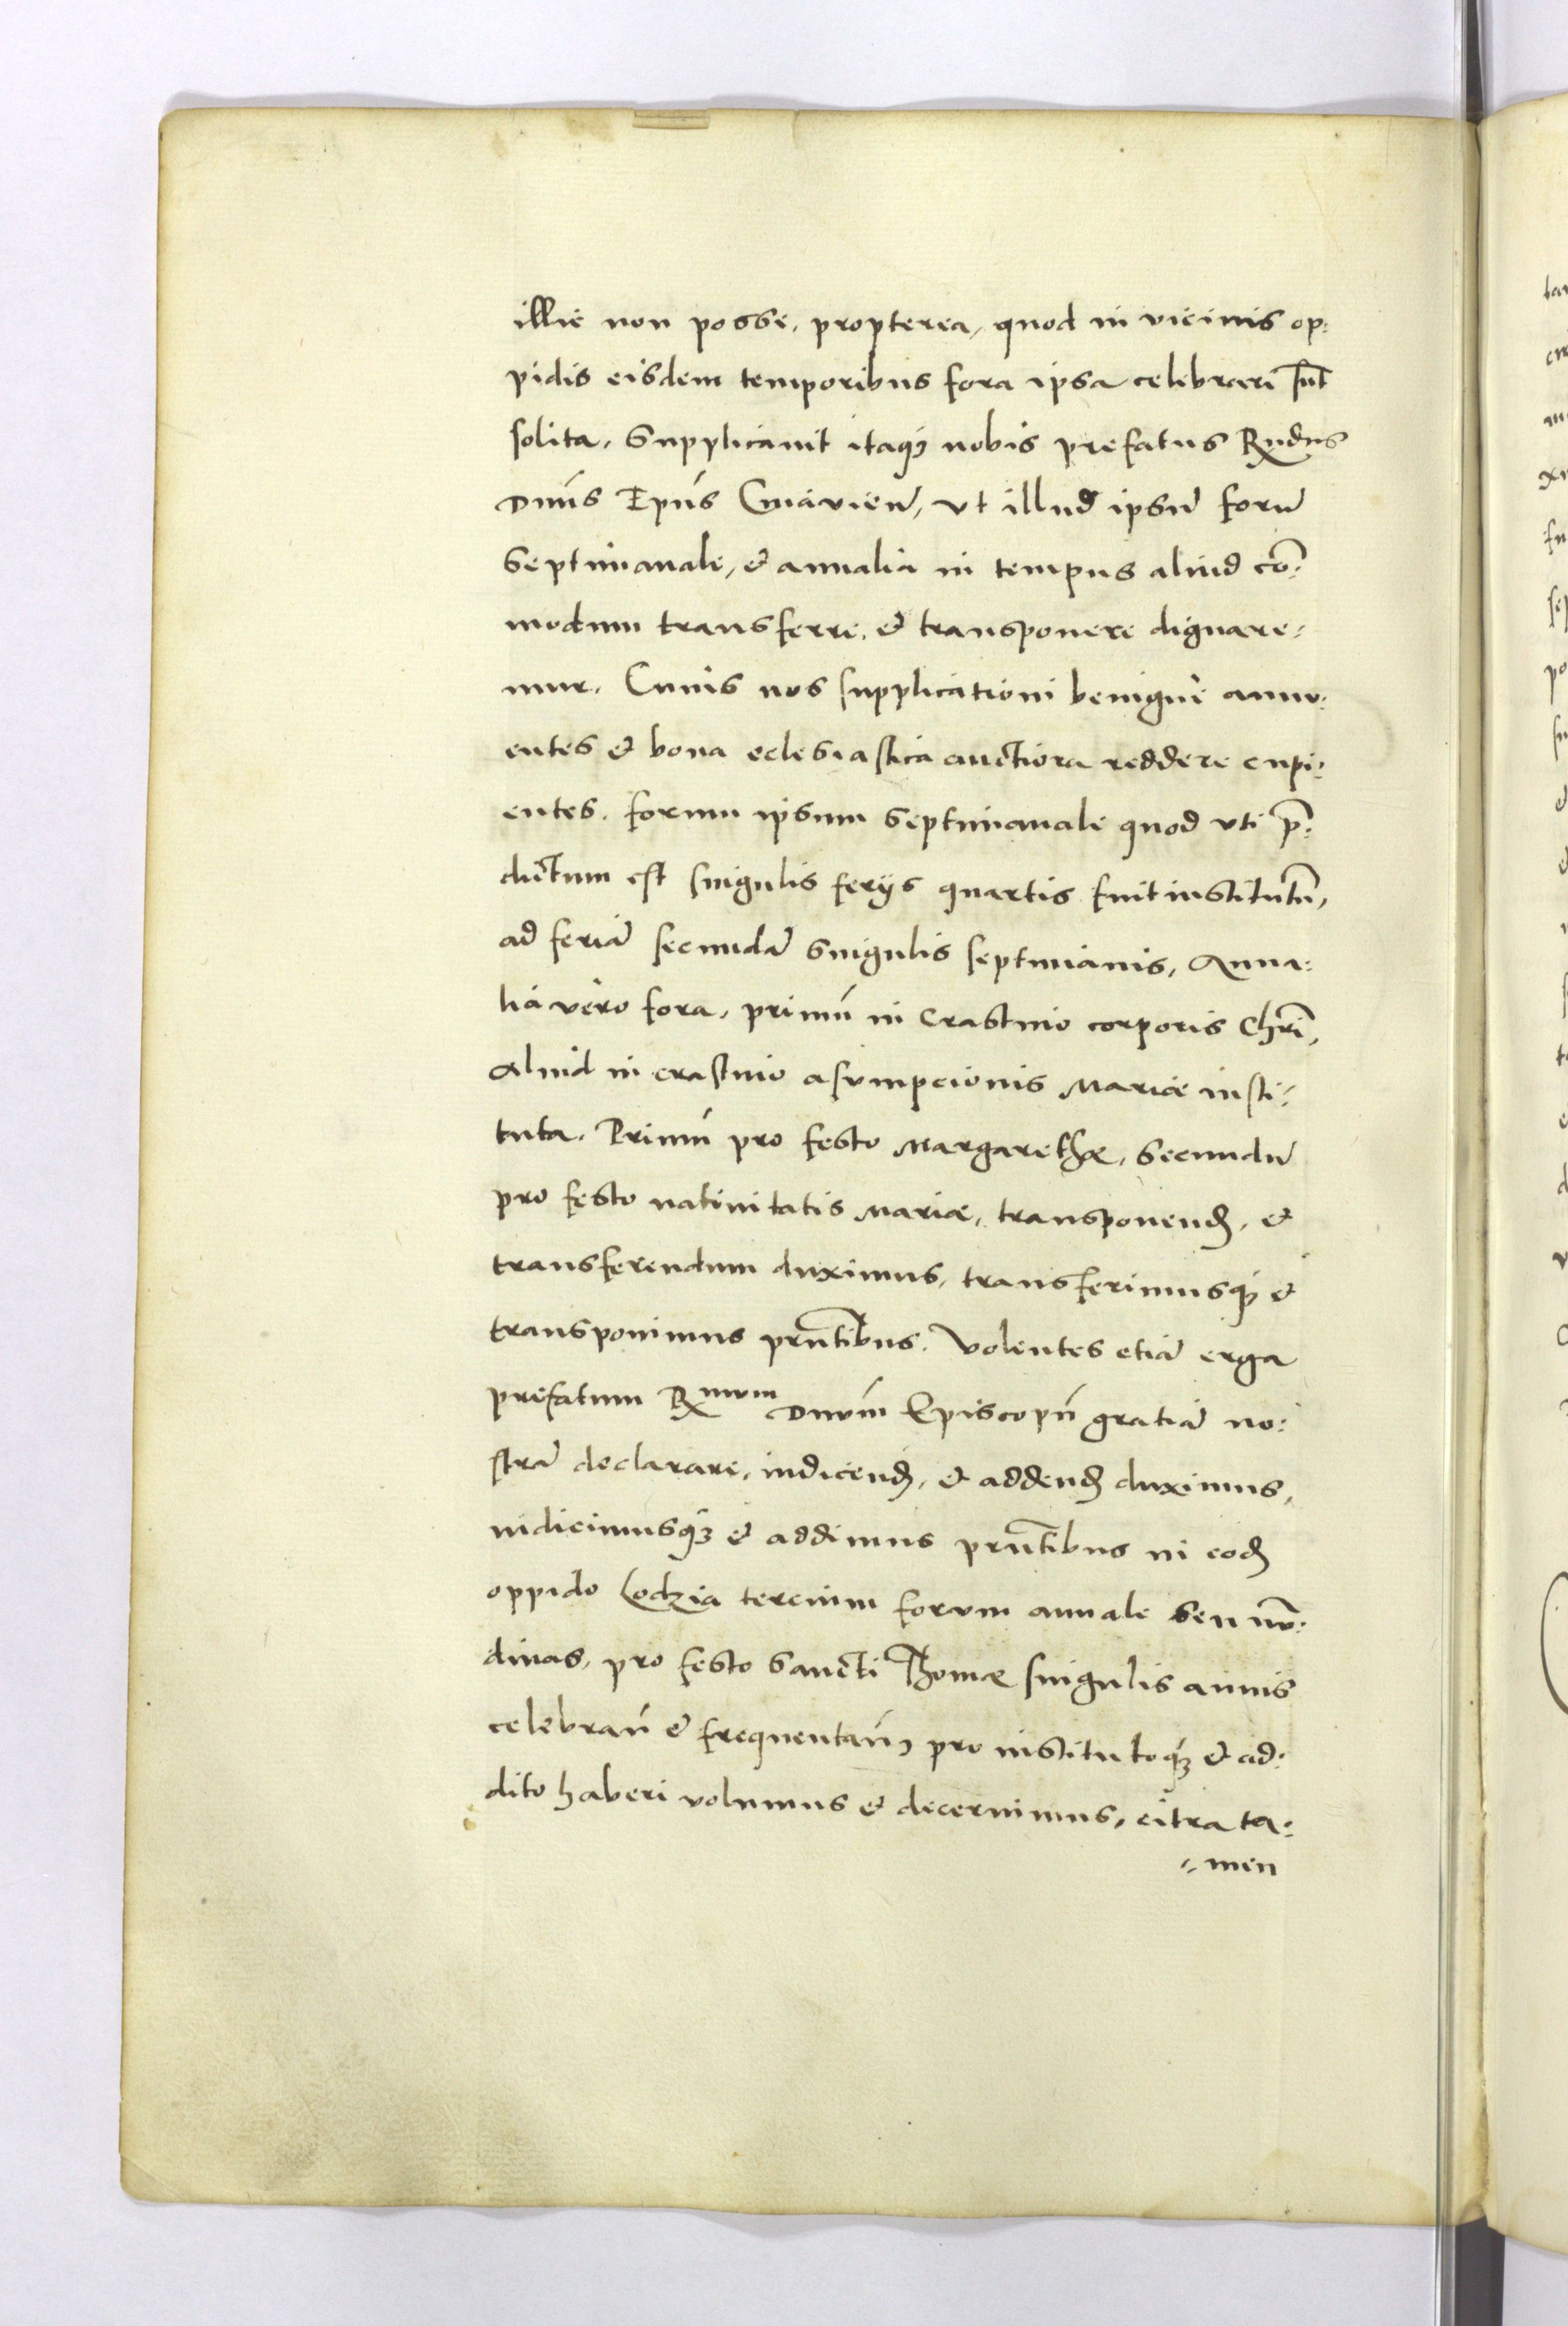 illic non posse, propterea, quod in vicinis op:
pidis eisdem temporibus fora ipsa celebrari sūt
solita, Supplicavit itaqꝫ nobis prefatus Rndus
Dnūs Epūs Cuiavień, vt illud ipsū forū
Septimanale, et annalia in tempus aliud cō:
modum transferre, et transponere dignare:
mur. Cuius nos supplicationi benigne annu:
entes et bona eclesiastica auctiora reddere cupi:
entes, forum ipsum Septimanale quod vti p̄:
dictum est singulis ferijs quartis fuit institutū,
ad feriā secundā Singulis septimanis, Annа:
lia vero fora, primū in Crastino corporis Chrī,
Aliud in crastino asumpcionis Mariæ insti:
tuta, Primū pro festo Margarethæ, Secundū
pro festo nativitatis Mariæ, transponenđ, et
transferendum duximus, transferimusqꝫ et
transponimus prntībus. Volentes etiā erga
prefatum Rmum Dnūm Episcopū gratiā no:
strā declarare, indicenđ, et addenđ duximus,
indicimusqꝫ et addimus prntībus in eođ
oppido Lodzia tercium forum annale Seu nū:
dinas, pro festo Sancti Thomæ singulis annis
celebrań et frequentań, pro institutoqꝫ et ad:
dito haberi volumus et decernimus, citra ta:
:men